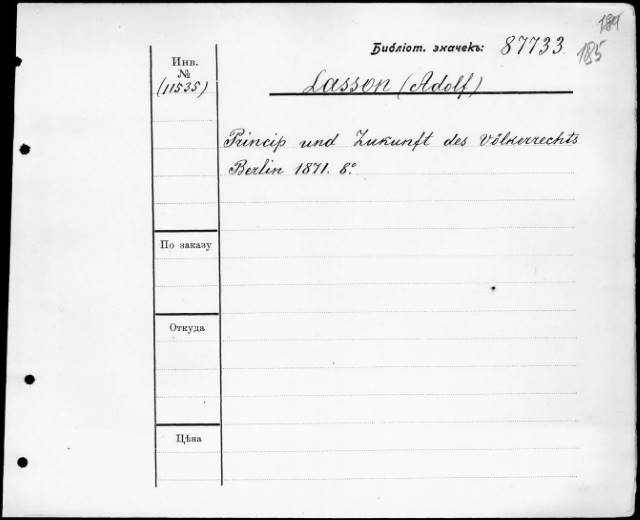 184
185
Библіот. значекъ: 87733
Инв.
№
(11535)
Lasson (Adolf)
Princip und Zukunft des Völkerrechts
Berlin 1871. 8°
По заказу
Откуда
Цѣна